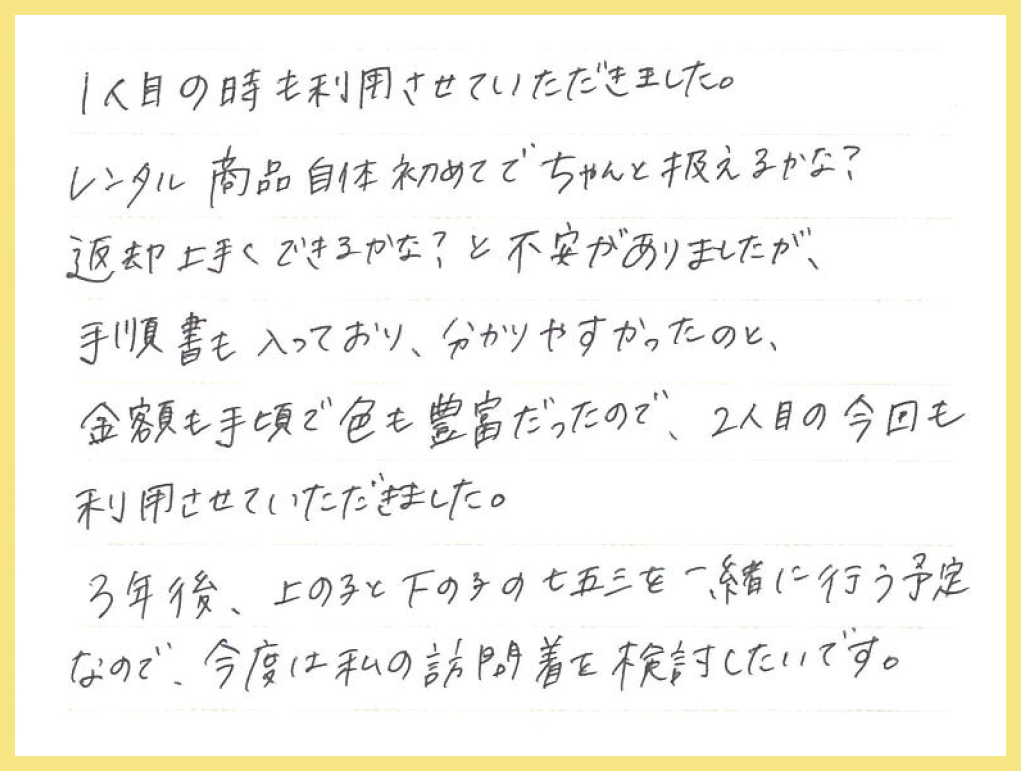 1人目の時も利用させていただきました。
レンタル商品自体初めてでちゃんと扱えるかな?
返却上手くできるかな?と不安がありましたが、
手順書も入っており、分かりやすかったのと、
金額も手頃で色も豊富だったので、2人目の今回も
利用させていただきました。
3年後、上の子と下の子の七五三を一緒に行う予定
なので、今度は私の訪問着を検討したいです。